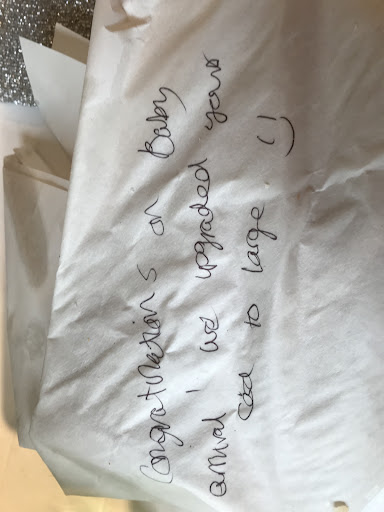 Congratulations on Baby
arrival, we upgraded your
Cod to large :)